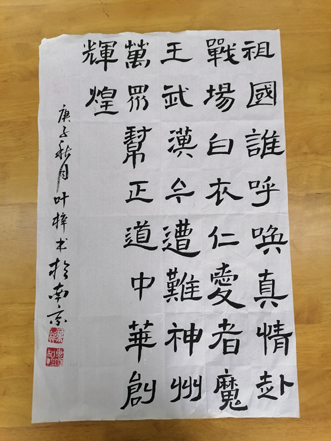 祖國誰呼喚真情赴
戰場白衣仁愛者魔
王武漢今遭難神州
萬眾幫正道中華創
輝煌
庚子秋月叶梓术於南京